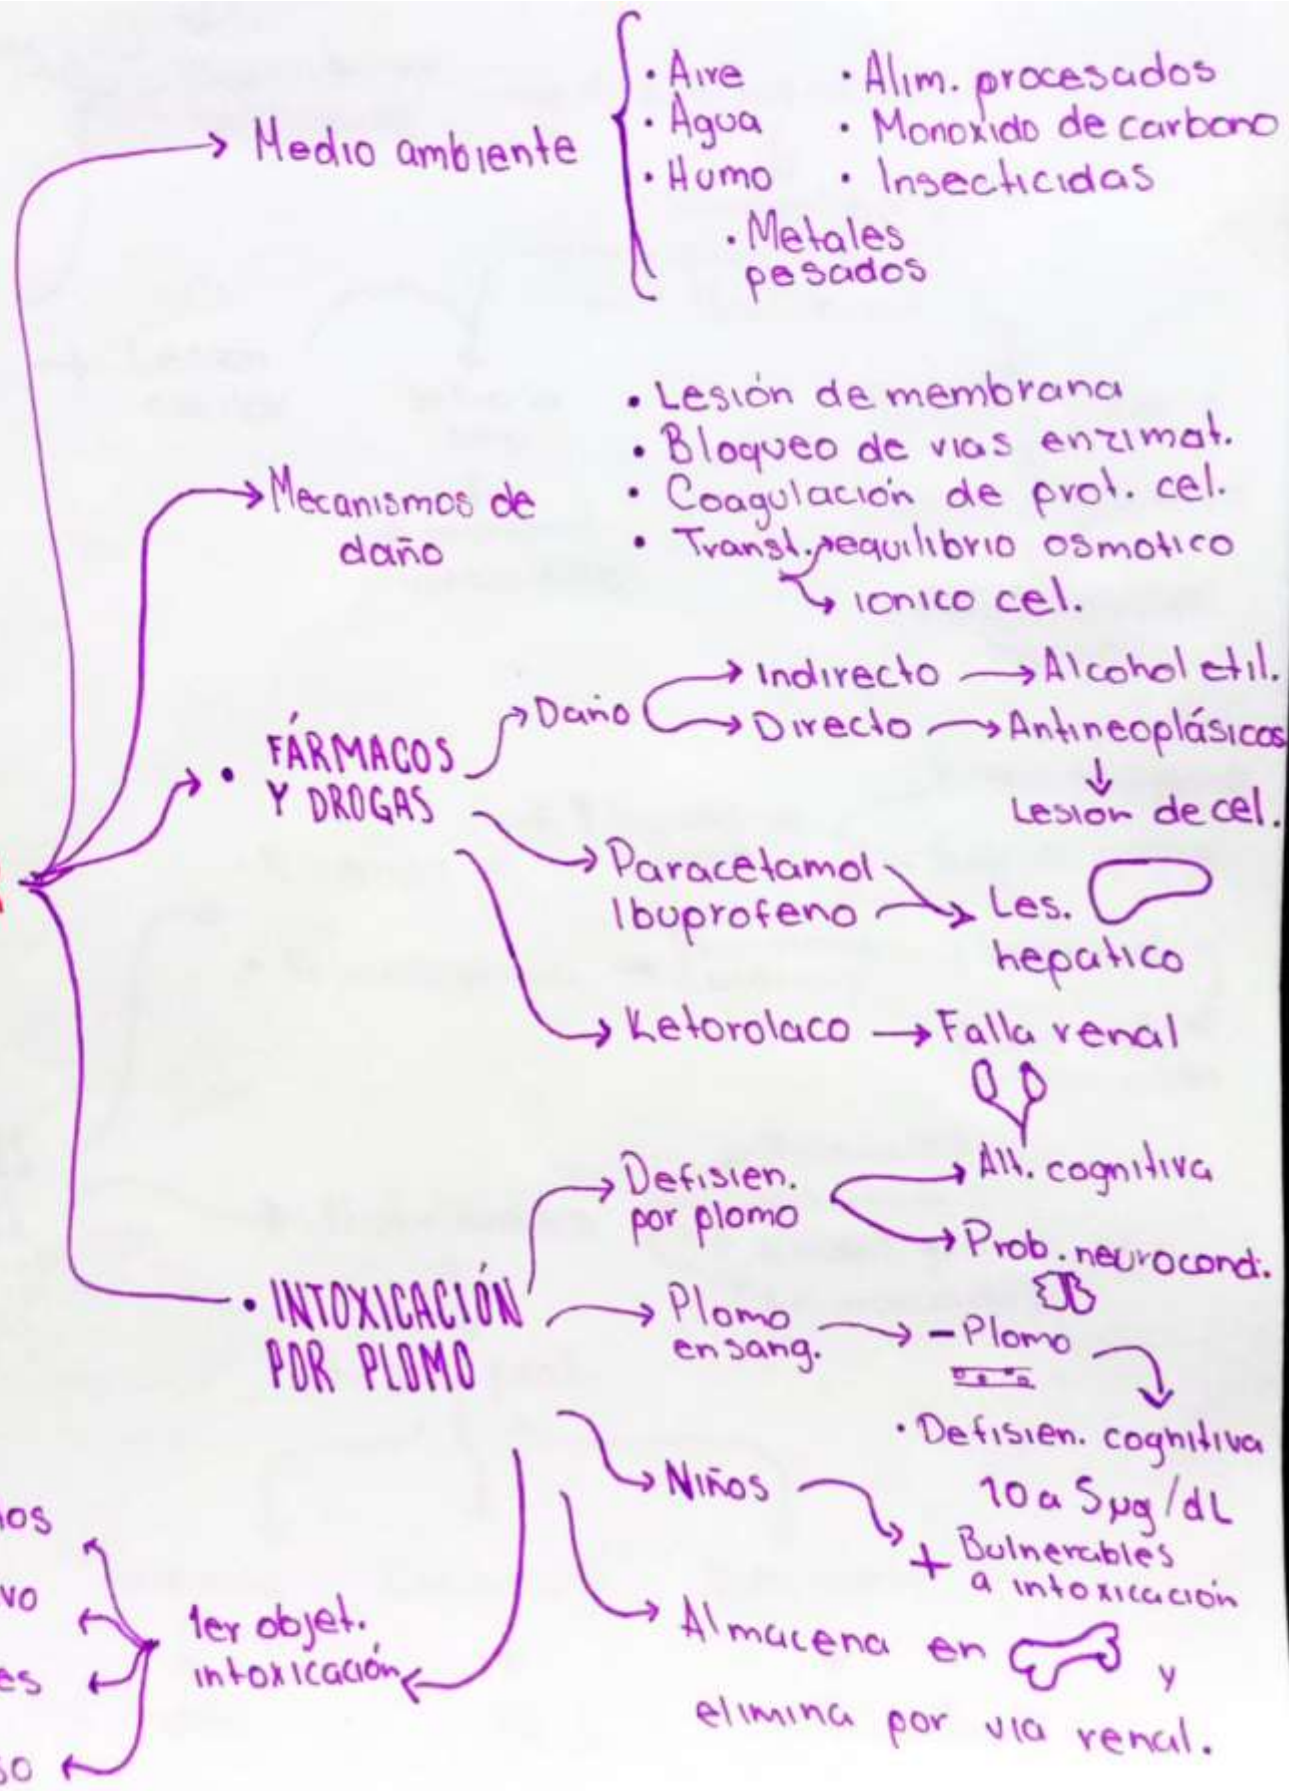 Medio ambiente
· Aire
· Agua
· Humo
· Alim. procesados
· Monoxido de carbono
· Insecticidas
· Metales
pesados
Mecanismos de
daño
· Lesión de membrana
· Bloqueo de vias enzimat.
· Coagulación de prot. cel.
· Transt. equilibrio osmotico
ionico cel.
· FÁRMACOS
Y DROGAS
Daño
Indirecto
Alcohol etil.
Directo
Antineoplásicos
Lesión de cel.
Paracetamol
Ibuprofeno
Les.
hepatico
Ketorolaco
Falla renal
· INTOXICACIÓN
POR PLOMO
Defisien.
por plomo
Alt. cognitiva
Prob. neurocond.
Plomo
en sang.
- Plomo
· Defisien. cognitiva
10 a 5 µg/dL
Niños
+ Bulnerables
a intoxicación
Almacena en y
elimina por via renal.
1er objet.
intoxicación